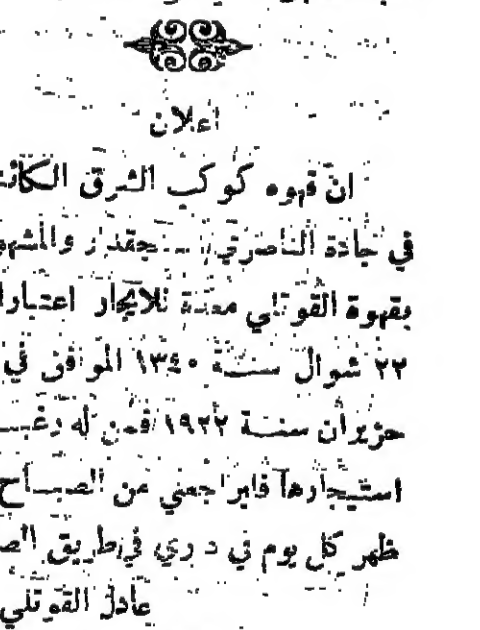 اعلان
انّ قهوه كوكب الشرق الكائنـ
في جادة الناصرة سنجقدار والمشهو
بقهوة القوتلي معدة للايجار اعتبارا
٢٢ شوال سنة ١٣٤٠ الموافق في
حزيران سنة ١٩٢٢ فمن له رغبـ
استيجارها فليراجعني من الصباح
ظهر كل يوم في داري في طريق الصـ
عادل القوتلي